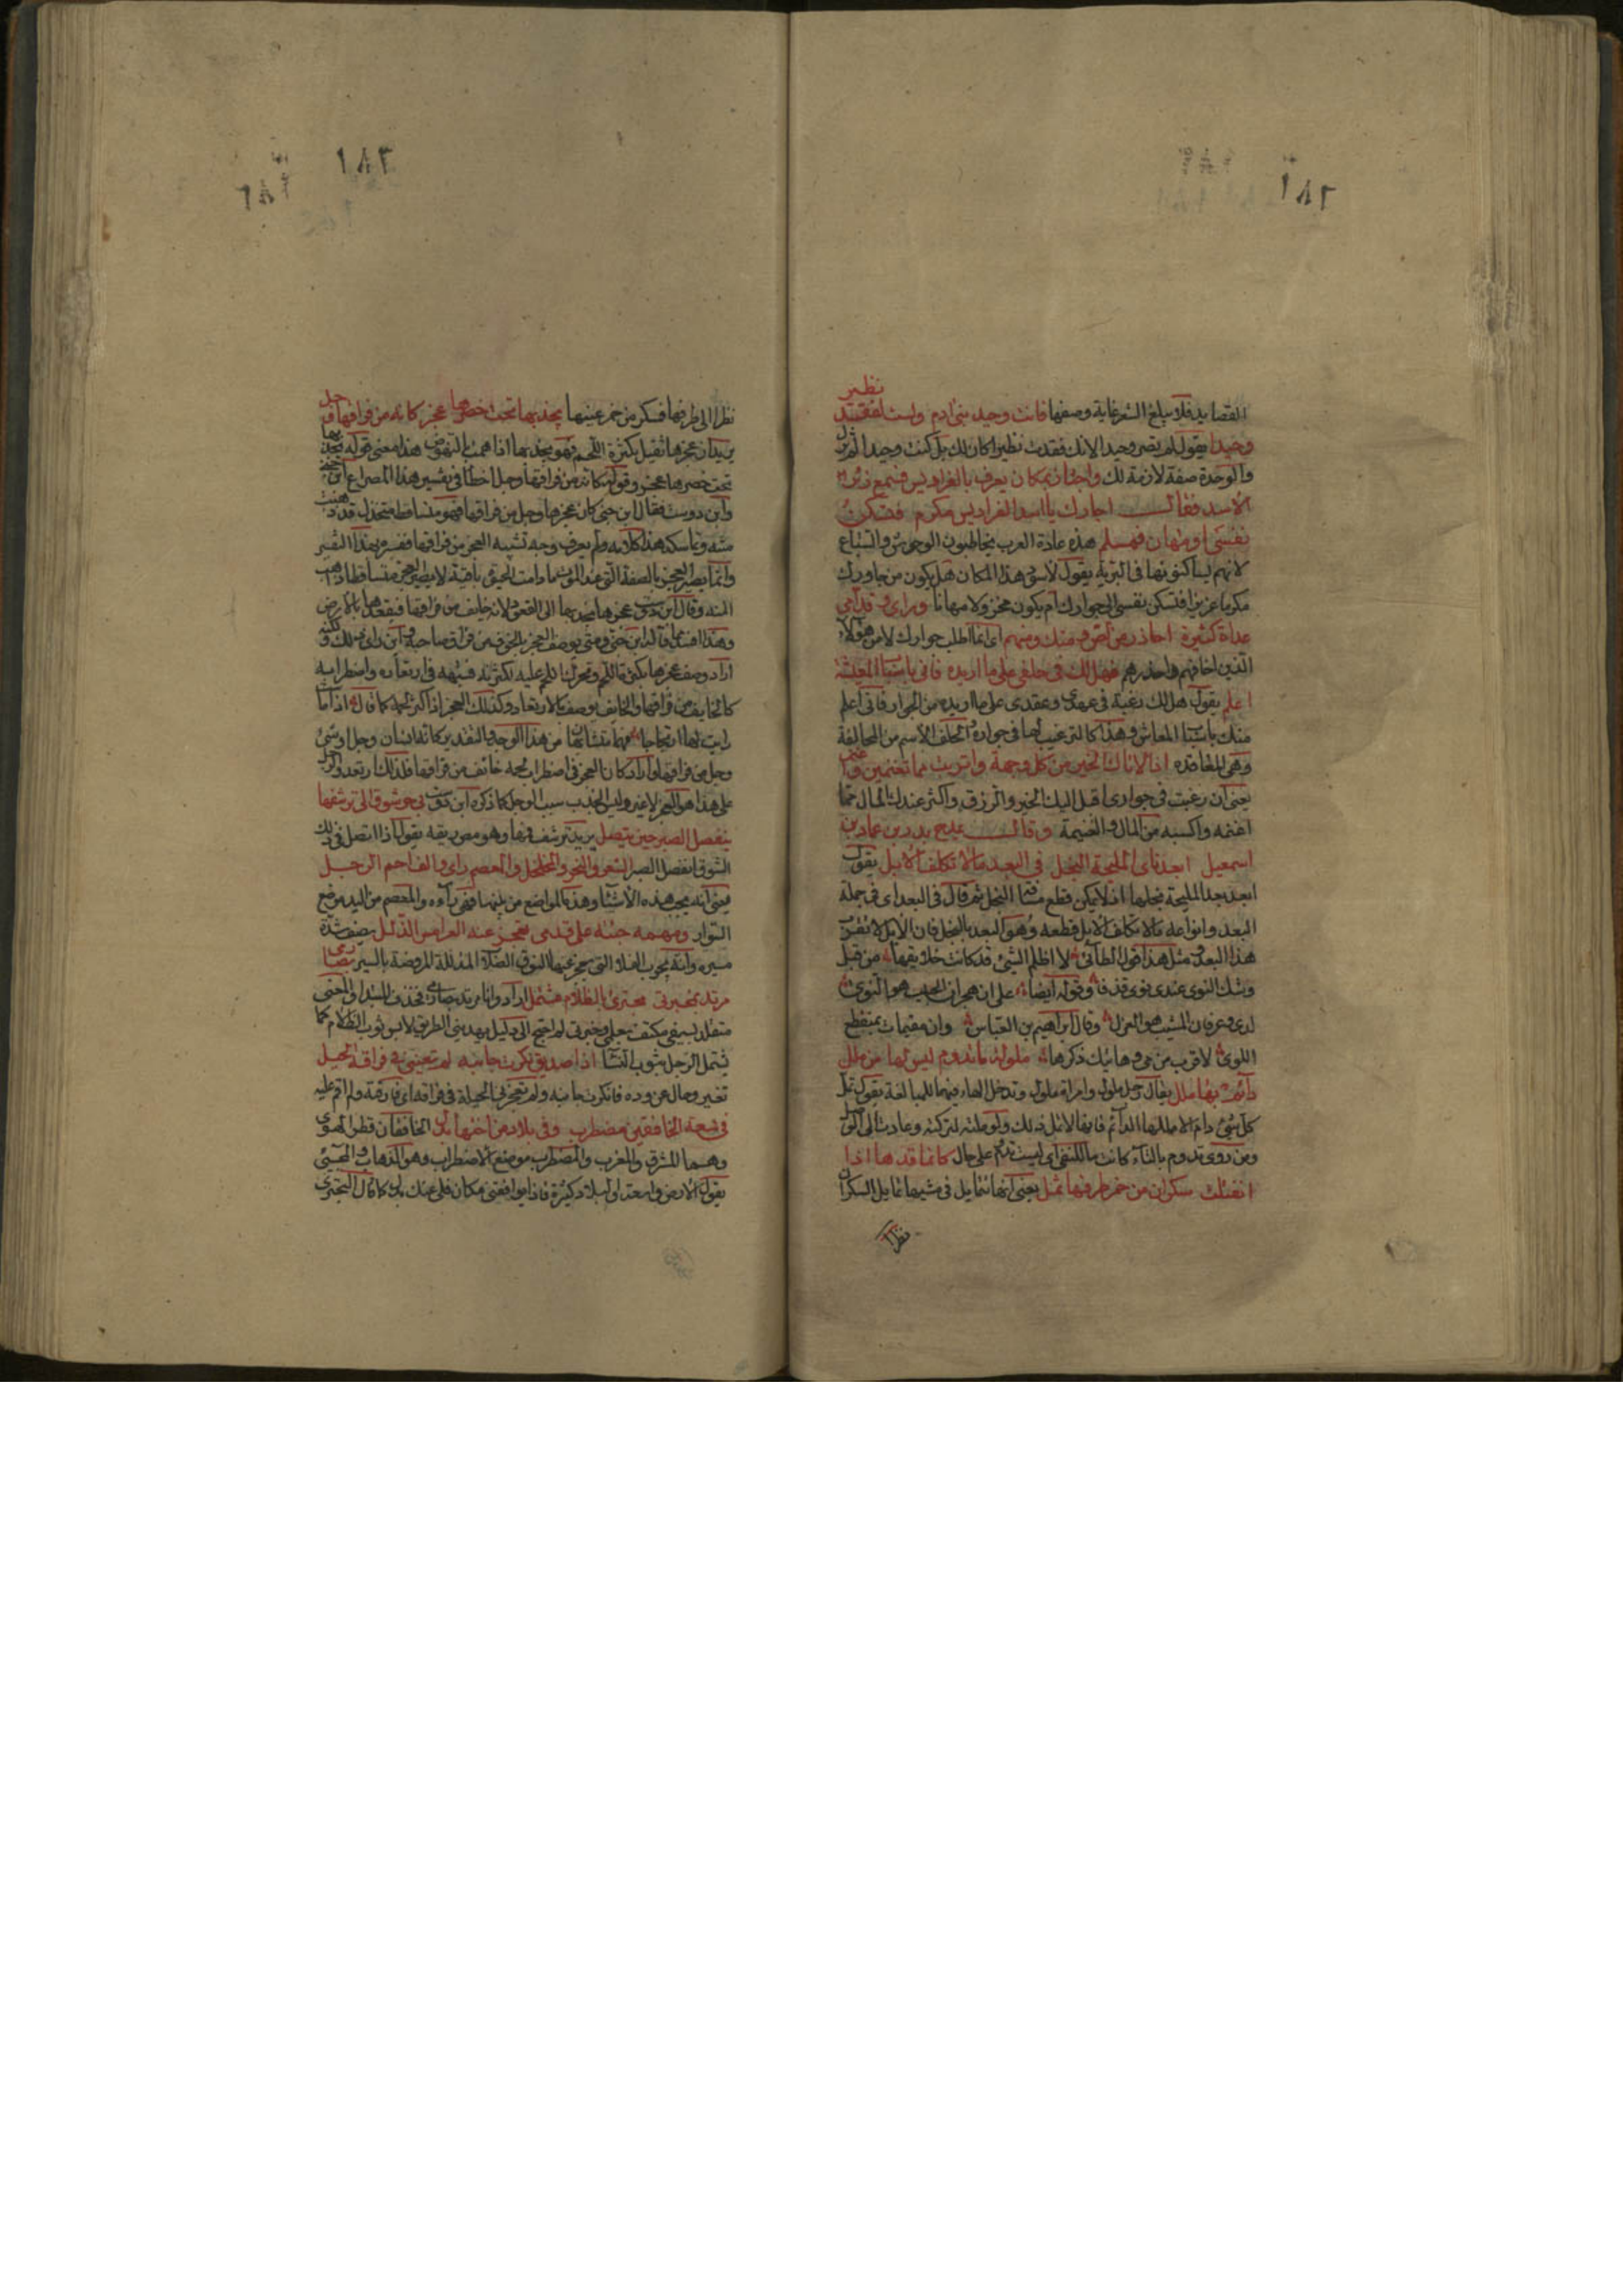 ١٨٢
نظير
القصايد فلا يبلغ الشعر غاية وصفها فانت وحيد بني ادم ولست لفقد
وحيدا يقول لم يصر وحيدا لانك فقدت نظيرا كان لك بل كنت وحيدا لم تزل
والوحدة صفة لازمة لك واجتاز بمكان يعرف بالفراديس فسمع زئير
الاسد فقال اجارك يا اسد الفراديس مكرم فتسكن
نفسي ام مهان فمسلم هذه عادة العرب يخاطبون الوحوش والسباع
لانهم يساكنونها في البرية يقول لاسود هذا المكان هل يكون من جاورك
مكرما عزيزا فتسكن نفسي الى جوارك ام يكون مخزولا مهانا ورائي وقدامي
عداة كثيرة احاذر من لص ومنك ومنهم اي انما اطلب جوارك لامن هؤلاء
الذين اخافهم واحذرهم فهل لك في حلفي على ما اريده فاني باسباب المعيشة
اعلم يقول هل لك رغبة في عهدي وعقدي على ما اريده من الجوار فاني اعلم
منك باسباب المعاش وهذا كالترغيب لها في جواره الحلف الاسم من المحالفة
وهي المعاقدة اذا لاتاك الخير من كل وجهة واثريت مما تغنمين واغنم
يعني ان رغبت في جواري اقبل اليك الخير والرزق واكثر عندك المال مما
اغنمه واكسبه من المال والغنيمة وقال يمدح بدر بن عمار بن
اسمعيل ابعد ناي المليحة البخل في البعد ما لا تكلف الابل يقول
ابعد بعد المليحة بخلها اذ لا يمكن قطع مسافة البخل ثم قال في البعد اي في جملة
البعد وانواعه ما لا تكلف الابل قطعه وهو البعد بالبخل فان الابل لا تقرب
هذا البعد ومثل هذا قول الطائي لا اظلم النأي قد كانت خلايقها من قبل
وشك النوى عندي نوى قذفا وقوله ايضا على ان هجران الحبيب هو النوى
لدي وعرفان المشيب هو العزل وقال ابراهيم بن العباس وان مقيمات بمنقطع
اللوى لاقرب من مي وهاتيك دارها ملولة ما يدوم ليس لها من ملل
دائم بها ملل يقال رجل ملول وامراة ملول وتدخل الهاء فيهما للمبالغة يقول تمل
كل شيء دام الا مللها الدائم فانها لا تمل ذلك ولو ملته لتركته وعادت الى الوصل
ومن روى تدوم بالتاء كانت ما للنفي اي ليست تدوم على حال كانما قدها اذا
انفتلت سكران من خمر طرفها ثمل يعني انها تتمايل في مشيها تمايل السكران
نظرا
١٨٣
نظرا الى طرفها فسكر من خمر عينيها يجذبها تحت خصرها عجز كانه من فراقها وجل
يريد ان عجزها ثقيل بكثرة اللحم فهو يجذبها اذا همت بالنهوض هذا معنى قوله يجذبها
تحت خصرها عجز وقوله كانه من فراقها وجل اخطا في تفسير هذا المصراع ابن جني
وابن دوست فقال ابن جني كان عجزها وجل من فراقها فهو متساقط متخذل قد ذهبت
منته وتماسكه هذا كلامه ولم يعرف وجه تشبيه العجز من فراقها ففسره بهذا التفسير
وانما يصير العجز بالصفة التي عند الموت فما دامت الحيوة باقية لا يصير العجز متساقطا ذاهب
المنة وقال ابن دوست عجزها يجذبها الى القعود لانه خايف من فراقها فيقعدها بالارض
وهذا افسد مما قاله ابن جني ومتى يوصف العجز بالخوف من فراق صاحبه واين راى ذلك ولكنه
اراد وصف عجزها بكثرة اللحم وتحرك اللحم عليه لكثرته فشبهه في ارتعاده واضطرابه
كالخايف من فراقها والخايف يوصف بالارتعاد وكذلك العجز اذا كثر لحمه كما قال اذا ما
رايت لها ارتجاجا فهما متشابهان من هذا الوجه والتقدير كانه انسان وجل او شيء
وجل من فراقها واراد كان العجز في اضطراب لحمه خائف من فراقها فلذلك ارتعد والوجل
على هذا هو العجز لا غير وليس الجذب سبب الوجل كما ذكره ابن دوست بي حر شوق الى ترشفها
ينفصل الصبر حين يتصل يريد ترشف فمها وهو مص ريقه يقول اذا اتصل في ذلك
الشوق انفصل الصبر الثغر والنحر والمخلخل والمعصم دائي والفاحم الرجل
يعني انه يحب هذه الاشياء وهذه المواضع من بدنها فهي داؤه والمعصم من اليد موضع
السوار ومهمه جبته على قدمي تعجز عنه العرامس الذلل يصف شدة
سيره وانه يجوب الفلاة التي تعجز عنها النوق الصلاة المذللة المروضة بالسير بصارمي
مرتد بمخبرتي مجتزئ بالظلام مشتمل اراد وانا مرتد بصارمي فحذف المبتدا والمعنى
متقلد بسيفي مكتف بعلمي وخبرتي لم احتج الى دليل يهديني الطريق لابس ثوب الظلام كما
يشتمل الرجل بثوب الشتا اذا صديق نكرت جانبه لم تعيني في فراقه الحيل
تغير وحال عن وده فانكرت جانبه ولم تعجزني الحيلة في فراقه اي فارقته ولم اقم عليه
في سعة الخافقين مضطرب وفي بلاد من اختها بدل الخافقان قطرا الهوى
وهما المشرق والمغرب والمضطرب موضع الاضطراب وهو الذهاب والمجيء
يقول الارض واسعة والبلاد كثيرة فاذا لم يوافقني مكان فلي عنك بدل كما قال البحتري